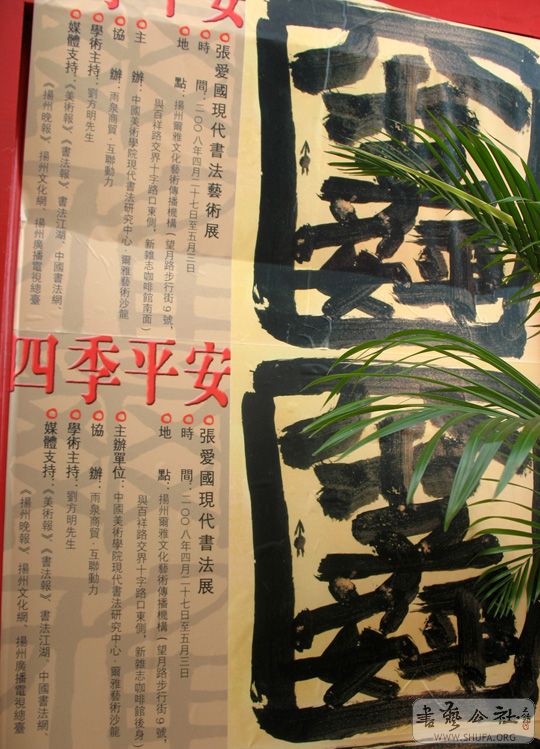 四季平安
張爱國現代書法藝術展
時 間：二〇〇八年四月二十七日至五月三日
地 點：揚州爾雅文化藝術傳播機構（望月路步行街9號，
與百祥路交界十字路口東側，新雜志咖啡館南面）
主 辦：中國美術學院現代書法研究中心·爾雅藝術沙龍
協 辦：雨泉商貿·互聯動力
學術主持：劉方明先生
媒體支持：《美術報》、《書法報》、書法江湖、中國書法網、
《揚州晚報》、揚州文化網、揚州廣播電視總臺
四季平安
張爱國現代書法展
時 間：二〇〇八年四月二十七日至五月三日
地 點：揚州爾雅文化藝術傳播機構（望月路步行街9號，
與百祥路交界十字路口東側，新雜志咖啡館後身）
主辦單位：中國美術學院現代書法研究中心·爾雅藝術沙龍
協 辦：雨泉商貿·互聯動力
學術主持：劉方明先生
媒體支持：《美術報》、《書法報》、書法江湖、中國書法網、
《揚州晚報》、揚州文化網、揚州廣播電視總臺
書藝公社
WWW.SHUFA.ORG